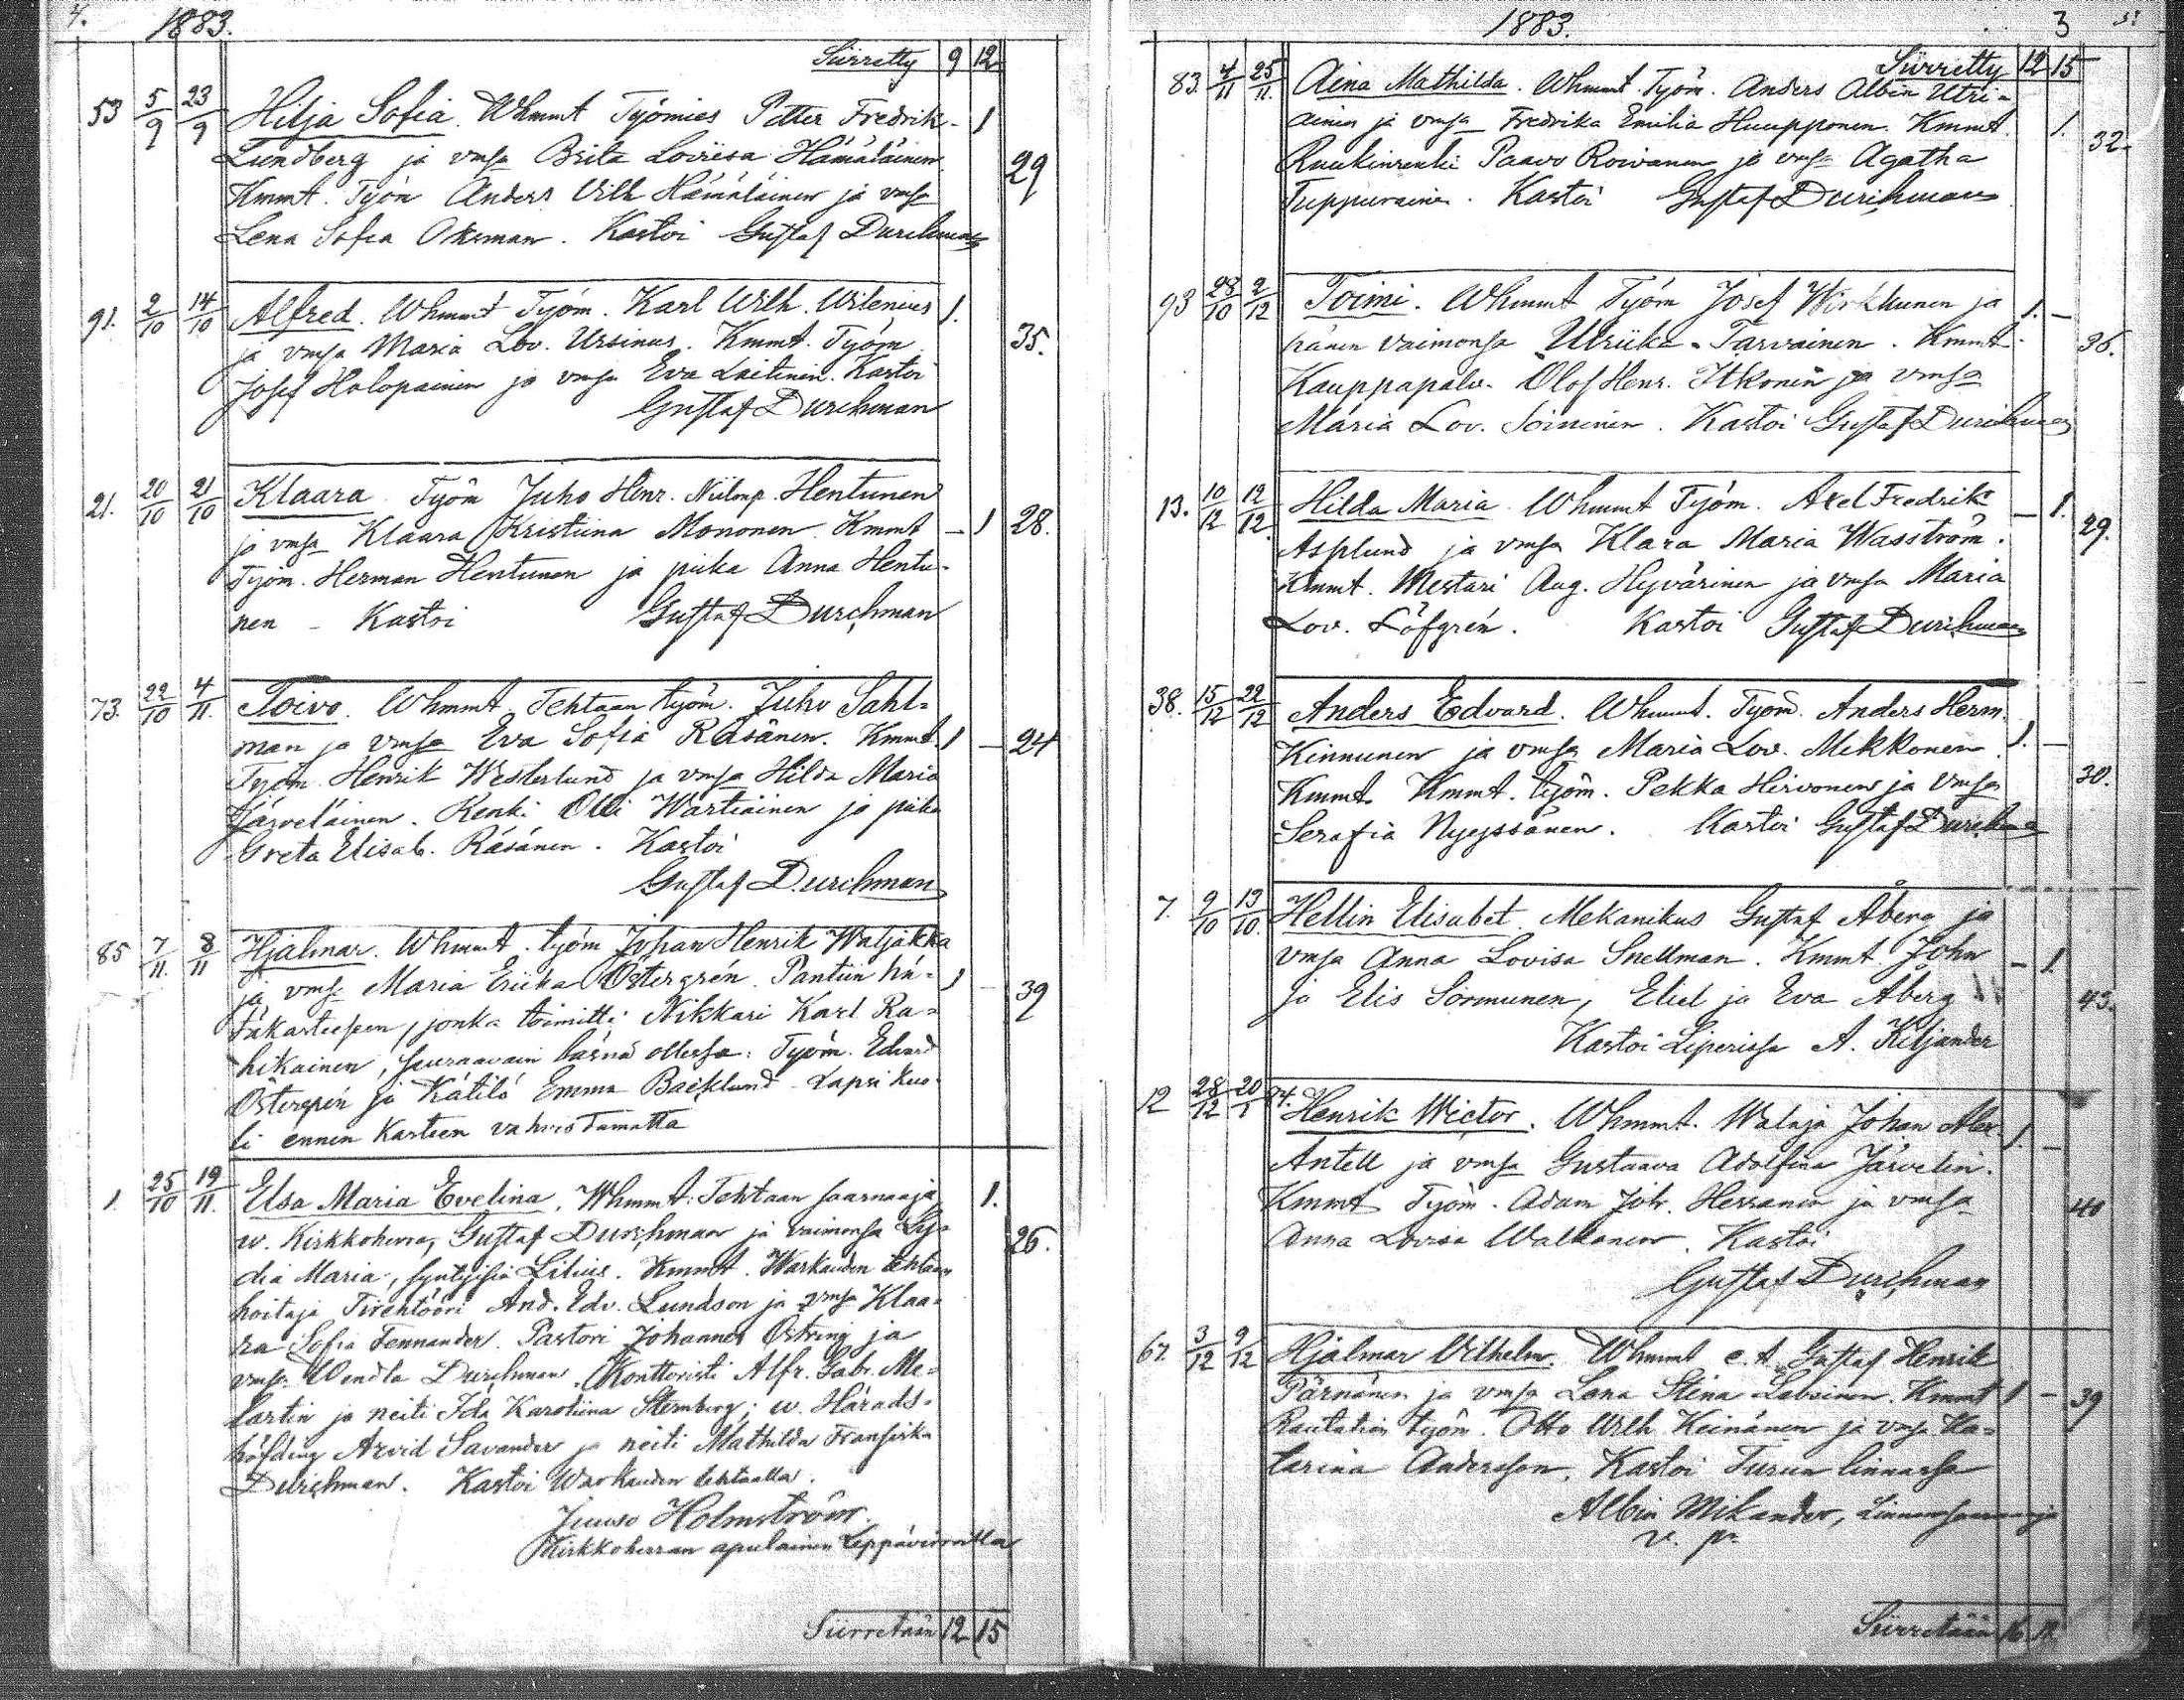 1883.
Siirretty 9 12
53 5/9 23/9 Hilja Sofia. Whmmt Työmies Petter Fredrik 1
Lundberg ja vmsa Brita Loviisa Hämäläinen 29
Kmmt. Työn Anders Vilh Hämäläinen ja vmsa
Lena Sofia Oksman. Kastoi Gustaf Durchman
91. 2/10 14/10 Alfred. Whmmt Työm. Karl Wilh. Wilenius 1.
ja vmsa Maria Lov. Ursinus. Kmmt. Työm 35.
Josef Holopainen ja vmsa Eva Laitinen. Kastoi
Gustaf Durchman
21. 20/10 21/10 Klaara Työm Juho Henr. Hentunen
ja vmsa Klaara Kristiina Mononen Kmmt - 1 28.
Työm. Herman Hentunen ja piika Anna Hentu-
nen - Kastoi Gustaf Durchman
73. 22/10 4/11. Toivo. Whmmt Tehtaan työm. Juho Sahl-
man ja vmsa Eva Sofia Räsänen. Kmmt. 1 - 24
Työm. Henrik Westerlund ja vmsa Hilda Maria
Järveläinen. Renki Olli Wartiainen ja piika
Greta Elisab. Räsänen. Kastoi
Gustaf Durchman
85 7/11. 8/11 Hjalmar. Whmmt. työm Johan Henrik Watjakka
ja vmsa Maria Eriika Östergrén. Pantiin hä- 1 - 39
täkasteesen, jonka toimitti Nikkari Karl Ra-
hikainen, seuraavain läsnä ollessa: Työm. Edvard
Östergrén ja Kätilö Emma Backlund - Lapsi kuo-
li ennen kasteen vahvistamatta
1. 25/10 19/11. Elsa Maria Evelina, Whmmt: Tehtaan saarnaaja 1.
w. Kirkkoherra, Gustaf Durchman ja vaimonsa Ly- 26.
dia Maria, syntyisin Lilius. Kmmt. Warkauden tehtaan
hoitaja Tirehtööri And. Edv. Lundson ja vmsa Klaa-
ra Sofia Fennander. Pastori Johannes Östring ja
vmsa Wendla Durchman. Konttoristi Alfr. Gabr. Me-
lartin ja neiti Ida Karoliina Sternberg; w. Härads-
höfding Arvid Savander ja neiti Mathilda Fransiska
Durchman. Kastoi Warkauden tehtaalla.
Juuso Holmström.
Kirkkoherran apulainen Leppävirroilla
Siirretään 12 15
1883. 3
Siirretty 12 15
83. 4/11 25/11. Aina Mathilda. Whmmt. Työm. Anders Albin Utri-
ainen ja vmsa Fredrika Emilia Huupponen. Kmmt. 1. 32.
Ruukinrenki Paavo Roivanen ja vmsa Agatha
Tuppurainen. Kastoi Gustaf Durchman
93 28/10 2/12 Toimi. Whmmt Työm Josef Wirkkunen ja 1. -
hänen vaimonsa Ulriika Tarvainen. Kmmt. 36.
Kauppapalv. Olof Henr. Itkonen ja vmsa
Maria Lov. Soininen. Kastoi Gustaf Durchman
13. 10/12 12/12. Hilda Maria. Whmmt Työm. Axel Fredrik - 1.
Asplund ja vmsa Klara Maria Wasström. 29.
Kmmt. Mestari Aug. Hyvärinen ja vmsa Maria
Lov. Löfgrén. Kastoi Gustaf Durchman
38. 15/12 22/12 Anders Edvard. Whmmt. Työm. Anders Herm.
Kinnunen ja vmsa Maria Lov. Mikkonen 1. -
Kmmt. Kmmt. työm. Pekka Hirvonen ja vmsa 30.
Serafia Nyyssönen. Kastoi Gustaf Durchman
7. 9/10 13/10. Hellin Elisabet Mekanikus Gustaf Åberg ja
vmsa Anna Lovisa Snellman. Kmmt. John - 1.
ja Elis Sormunen, Eliel ja Eva Åberg 43.
Kastoi Liperissa A. Kiljander
12 28/12 20/1 84. Henrik Wictor. Whmmt. Walaja Johan Alex. 1. -
Antell ja vmsa Gustaava Adolfina Järvelin.
Kmmt Työm. Adam Joh. Herranen ja vmsa 40
Anna Lovisa Walkonen. Kastoi
Gustaf Durchman
67. 3/12 9/12 Hjalmar Vilhelm. Whmmt e.t. Gustaf Henrik
Pärnänen ja vmsa Lena Stina Kmmt 1 - 39
Rautatien työm. Otto Wilh Keinänen ja vmsa Ka-
tarina Andersson. Kastoi Turun linnassa
Albin Mikander, Linnansaarnaaja
v. p.
Siirretään 16